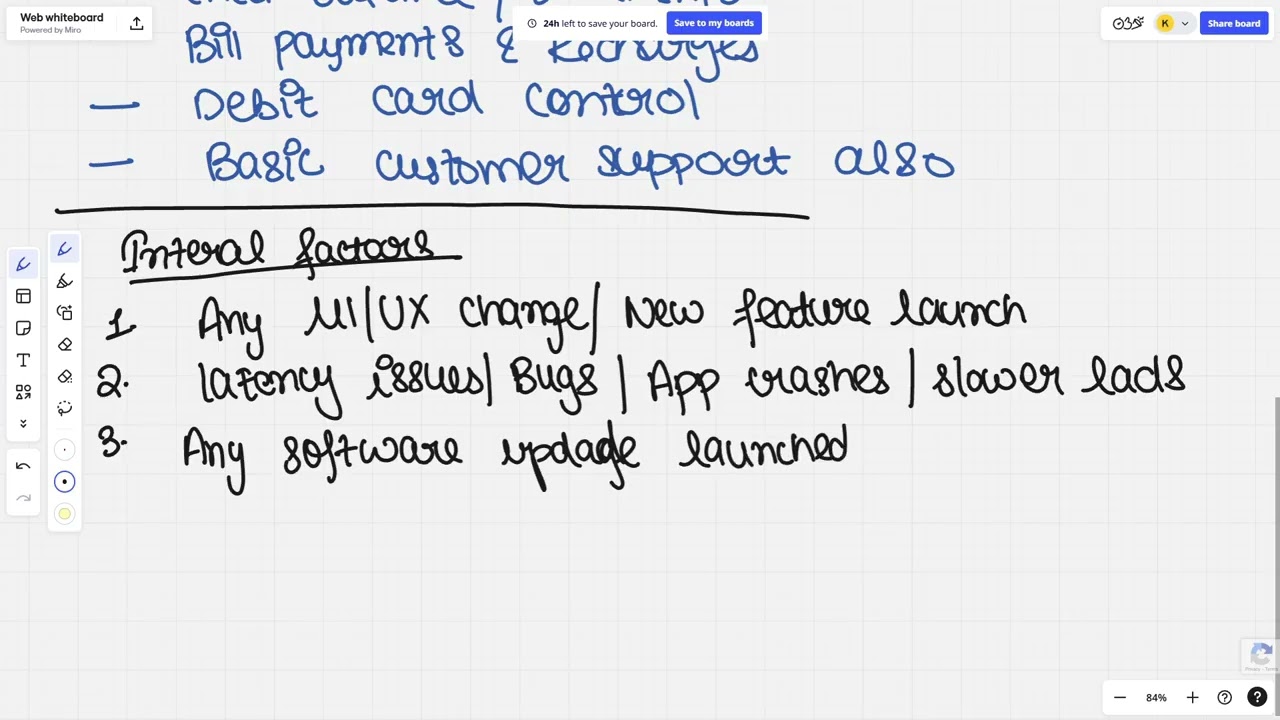 Web whiteboard
Powered by Miro
24h left to save your board.
Save to my boards
K
Share board
Bill payments & Recharges
— Debit card control
— Basic customer support also
Interal factors
1. Any UI/UX change/ New feature launch
2. latency issues| Bugs | App crashes | slower lads
3. Any software updage launched
84%
Privacy - Terms